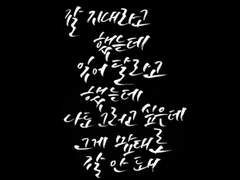 잘 지내라고
했는데
잊어 달라고
했는데
나도 그러고 싶은데
그게 맘대로
잘 안 돼